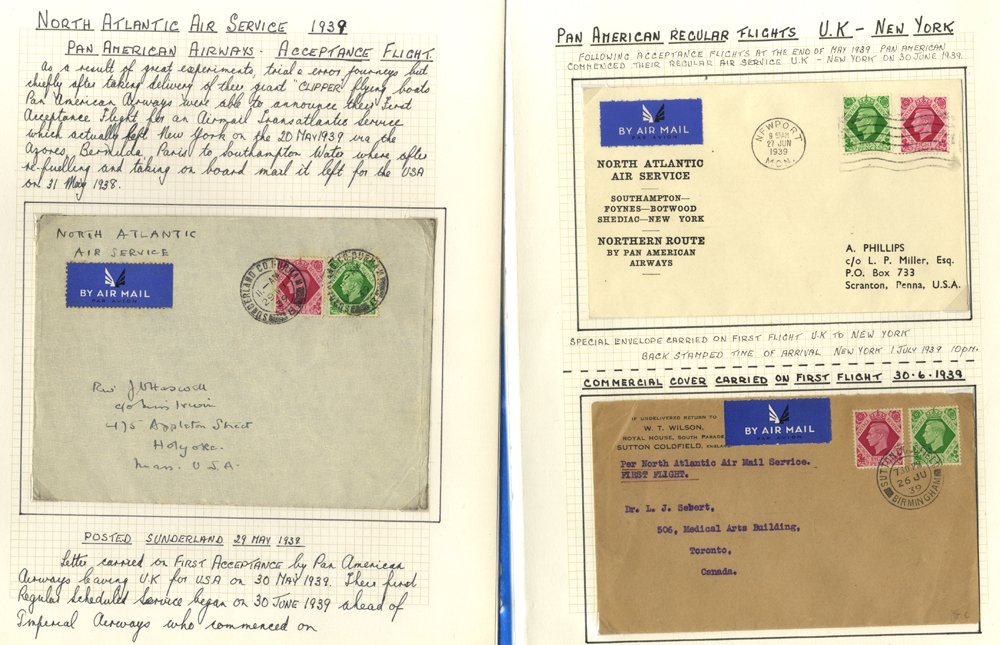 NORTH ATLANTIC AIR SERVICE 1939
PAN AMERICAN AIRWAYS. ACCEPTANCE FLIGHT.
As a result of great experiments, trial & error journeys but
chiefly after taking delivery of their giant "CLIPPER" flying boats
Pan American Airways were able to announce their First
Acceptance Flight for an Airmail Transatlantic Service
which actually left New York on the 20 MAY 1939 via the
Azores, Bermuda, Paris to Southampton Water where after
re-fuelling and taking on board mail it left for the USA
on 31 May 1938.
NORTH ATLANTIC
AIR SERVICE
BY AIR MAIL
PAR AVION
SUNDERLAND CO. DURHAM
Rev J
c/o Miss Irwin
475 Appleton Street
Holyoke.
Mass. U.S.A.
POSTED SUNDERLAND 29 MAY 1939
Letter carried on FIRST ACCEPTANCE by Pan American
Airways leaving U.K for USA on 30 MAY 1939. Their first
Regular Scheduled Service began on 30 JUNE 1939 ahead of
Imperial Airways who commenced on
PAN AMERICAN REGULAR FLIGHTS U.K - NEW YORK
FOLLOWING ACCEPTANCE FLIGHTS AT THE END OF MAY 1939 PAN AMERICAN
COMMENCED THEIR REGULAR AIR SERVICE U.K - NEW YORK ON 30 JUNE 1939.
BY AIR MAIL
PAR AVION
NEWPORT
27 JUN
1939
MON.
NORTH ATLANTIC
AIR SERVICE
SOUTHAMPTON—
FOYNES—BOTWOOD
SHEDIAC—NEW YORK
NORTHERN ROUTE
BY PAN AMERICAN
AIRWAYS
A. PHILLIPS
c/o L. P. Miller, Esq.
P.O. Box 733
Scranton, Penna, U.S.A.
SPECIAL ENVELOPE CARRIED ON FIRST FLIGHT U.K TO NEW YORK
BACK STAMPED TIME OF ARRIVAL NEW YORK 1 JULY 1939 10pm.
COMMERCIAL COVER CARRIED ON FIRST FLIGHT 30.6.1939
IF UNDELIVERED RETURN TO
W. T. WILSON,
ROYAL HOUSE, SOUTH PARADE
SUTTON COLDFIELD, ENGLAND
BY AIR MAIL
PAR AVION
Per North Atlantic Air Mail Service.
FIRST FLIGHT.
SUTTON
26 JU
39
BIRMINGHAM
Dr. L. J. Sebert,
506, Medical Arts Building,
Toronto,
Canada.